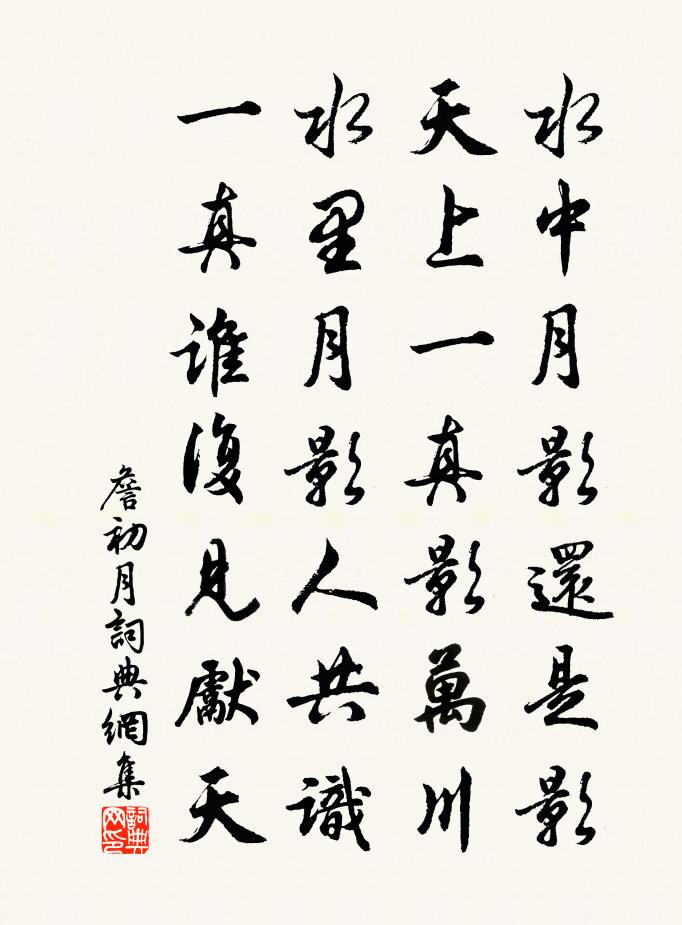 水中月影還是影
天上一真影萬川
水里月影人共識
一真誰復見獻天
詹初月詞典網集
詞典网印